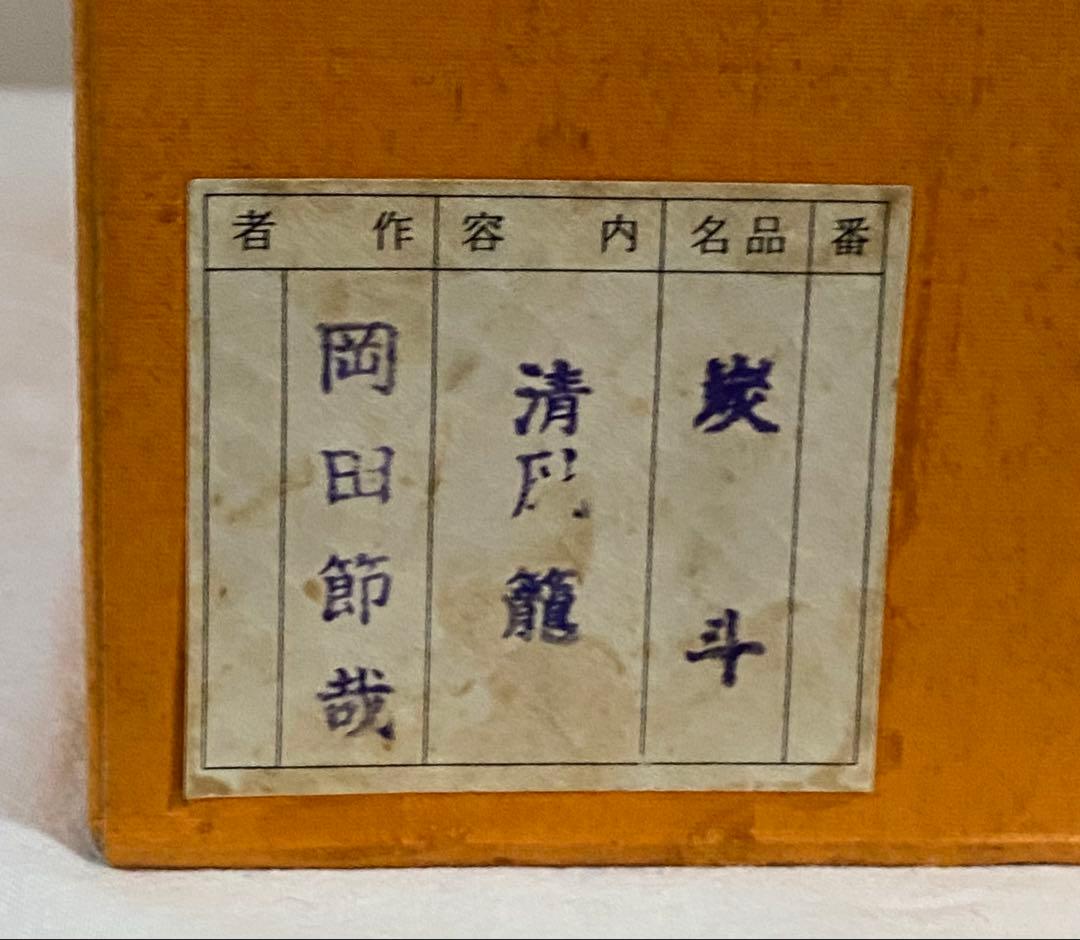 番
品名
炭斗
内容
清 籠
作者
岡田節哉